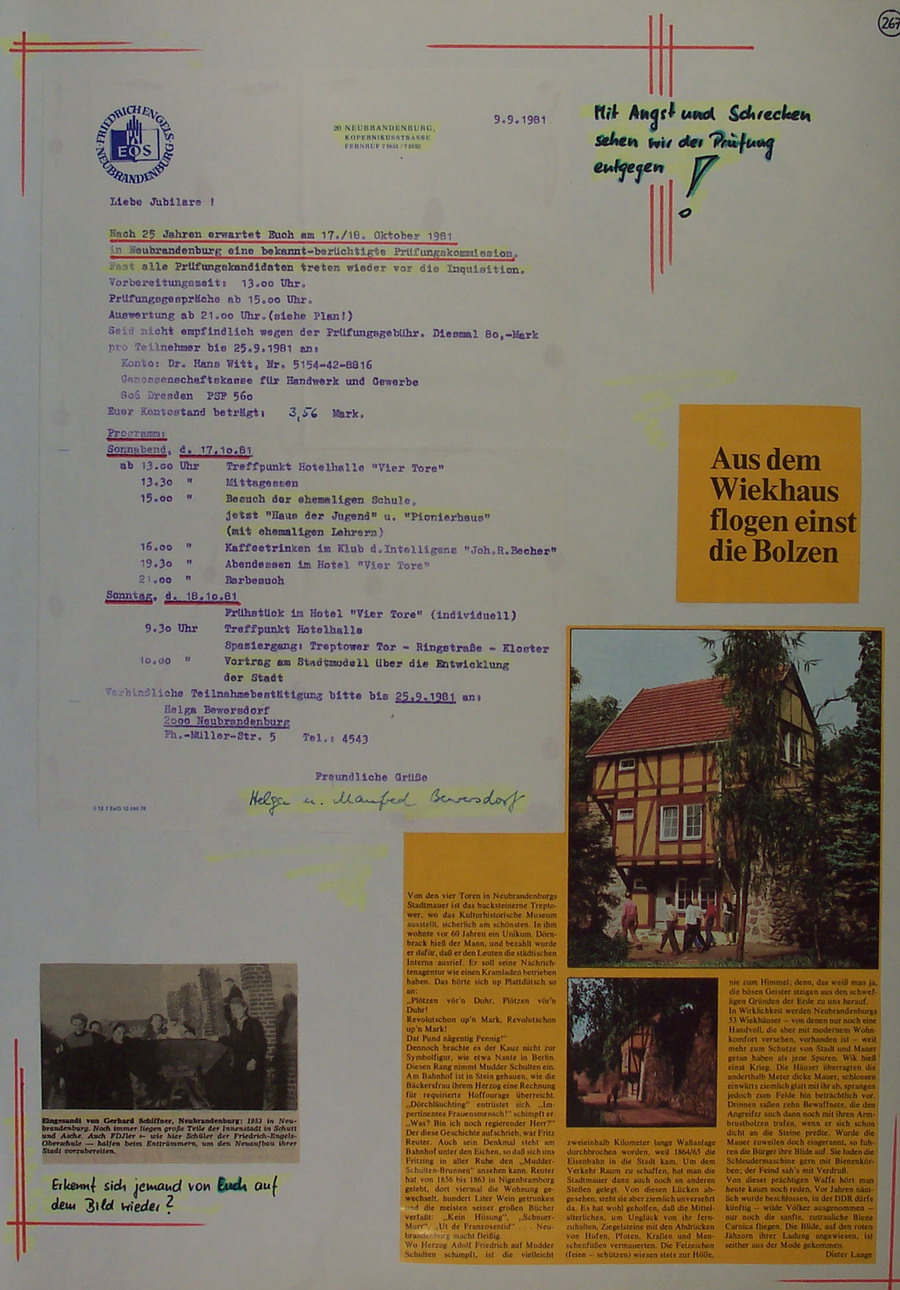 267
FRIEDRICH ENGELS
EOS
NEUBRANDENBURG
20 NEUBRANDENBURG,
KOPERNIKUSSTRASSE
9.9.1981
Mit Angst und Schrecken
sehen wir der Prüfung
entgegen !
Liebe Jubilare !
Nach 25 Jahren erwartet Euch am 17./18. Oktober 1981
in Neubrandenburg eine bekannt-berüchtigte Prüfungskommission.
Fast alle Prüfungskandidaten treten wieder vor die Inquisition.
Vorbereitungszeit: 13.oo Uhr.
Prüfungsgespräche ab 15.oo Uhr.
Auswertung ab 21.oo Uhr.(siehe Plan!)
Seid nicht empfindlich wegen der Prüfungsgebühr. Diesmal 8o,-Mark
pro Teilnehmer bis 25.9.1981 an:
Konto: Dr. Hans Witt, Nr. 5154-42-8816
Genossenschaftskasse für Handwerk und Gewerbe
8o6 Dresden PSF 56o
Euer Kontostand beträgt: 3,56 Mark.
Programm:
Sonnabend, d. 17.10.81
ab 13.oo Uhr Treffpunkt Hotelhalle "Vier Tore"
13.3o " Mittagessen
15.oo " Besuch der ehemaligen Schule,
jetzt "Haus der Jugend" u. "Pionierhaus"
(mit ehemaligen Lehrern)
16.oo " Kaffeetrinken im Klub d.Intelligenz "Joh.R.Becher"
19.3o " Abendessen im Hotel "Vier Tore"
21.oo " Barbesuch
Sonntag, d. 18.10.81
Frühstück im Hotel "Vier Tore" (individuell)
9.3o Uhr Treffpunkt Hotelhalle
Spaziergang: Treptower Tor - Ringstraße - Kloster
1o.oo " Vortrag am Stadtmodell über die Entwicklung
der Stadt
Verbindliche Teilnahmebestätigung bitte bis 25.9.1981 an:
Helga Bewersdorf
2ooo Neubrandenburg
Ph.-Müller-Str. 5 Tel.: 4543
Freundliche Grüße
Helga u. Manfred Bewersdorf
Aus dem
Wiekhaus
flogen einst
die Bolzen
Von den vier Toren in Neubrandenburgs
Stadtmauer ist das backsteinerne Trepto-
wer, wo das Kulturhistorische Museum
ausstellt, sicherlich am schönsten. In ihm
wohnte vor 60 Jahren ein Unikum. Dörn-
brack hieß der Mann, und bezahlt wurde
er dafür, daß er den Leuten die städtischen
Interna ausrief. Er soll seine Nachrich-
tenagentur wie einen Kramladen betrieben
haben. Das hörte sich up Plattdütsch so
an:
„Plötzen vör'n Duhr, Plötzen vör'n
Duhr!
Revolutschon up'n Mark, Revolutschon
up'n Mark!
Dat Pund nägentig Pennig!"
Dennoch brachte es der Kauz nicht zur
Symbolfigur, wie etwa Nante in Berlin.
Diesen Rang nimmt Mudder Schulten ein.
Am Bahnhof ist in Stein gehauen, wie die
Bäckersfrau ihrem Herzog eine Rechnung
für requirierte Hoffourage überreicht.
„Dörchläuchting" entrüstet sich, „Im-
pertinentes Frauensmensch!" schimpft er.
„Was? Bin ich noch regierender Herr?"
Der diese Geschichte aufschrieb, war Fritz
Reuter. Auch sein Denkmal steht am
Bahnhof unter den Eichen, so daß sich uns
Fritzing in aller Ruhe den „Mudder-
Schulten-Brunnen" ansehen kann. Reuter
hat von 1856 bis 1863 in Nigenbramborg
gelebt, dort viermal die Wohnung ge-
wechselt, hundert Liter Wein getrunken
und die meisten seiner großen Bücher
verfaßt: „Kein Hüsung", „Schnurr-
Murr", „Ut de Franzosentid" . . . Neu-
brandenburg macht fleißig.
Wo Herzog Adolf Friedrich auf Mudder
Schulten schimpft, ist die vielleicht
zweieinhalb Kilometer lange Wallanlage
durchbrochen worden, weil 1864/65 die
Eisenbahn in die Stadt kam. Um dem
Verkehr Raum zu schaffen, hat man die
Stadtmauer dann auch noch an anderen
Stellen gelegt. Von diesen Lücken ab-
gesehen, steht sie aber ziemlich unversehrt
da. Es hat wohl geholfen, daß die Mittel-
alterlichen, um Unglück von ihr fern-
zuhalten, Ziegelsteine mit den Abdrücken
von Hufen, Pfoten, Krallen und Men-
schenfüßen vermauerten. Die Feizeichen
(feien – schützen) wiesen stets zur Hölle,
nie zum Himmel, denn, das weiß man ja,
die bösen Geister steigen aus den schwef-
ligen Gründen der Erde zu uns herauf.
In Wirklichkeit werden Neubrandenburgs
53 Wiekhäuser – von denen nur noch eine
Handvoll, die aber mit modernem Wohn-
komfort versehen, vorhanden ist – weit
mehr zum Schutze von Stadt und Mauer
getan haben als jene Spuren. Wik hieß
einst Krieg. Die Häuser überragten die
anderthalb Meter dicke Mauer, schlossen
einwärts ziemlich glatt mit ihr ab, sprangen
jedoch zum Felde hin beträchtlich vor.
Drinnen saßen zehn Bewaffnete, die den
Angreifer auch dann noch mit ihren Arm-
brustbolzen trafen, wenn er sich schon
dicht an die Steine preßte. Wurde die
Mauer zuweilen doch eingerannt, so fuh-
ren die Bürger ihre Blide auf. Sie luden die
Schleudermaschine gern mit Bienenkör-
ben; der Feind sah's mit Verdruß.
Von dieser prächtigen Waffe hört man
heute kaum noch reden. Vor Jahren näm-
lich wurde beschlossen, in der DDR dürfe
künftig – wilde Völker ausgenommen –
nur noch die sanfte, zutrauliche Biene
Carnica fliegen. Die Blide, auf den roten
Jähzorn ihrer Ladung angewiesen, ist
seither aus der Mode gekommen.
Dieter Lange
Eingesandt von Gerhard Schiffner, Neubrandenburg: 1953 in Neu-
brandenburg. Noch immer liegen große Teile der Innenstadt in Schutt
und Asche. Auch FDJler – wie hier Schüler der Friedrich-Engels-
Oberschule – halfen beim Enttrümmern, um den Neuaufbau ihrer
Stadt vorzubereiten.
Erkennt sich jemand von Euch auf
dem Bild wieder?